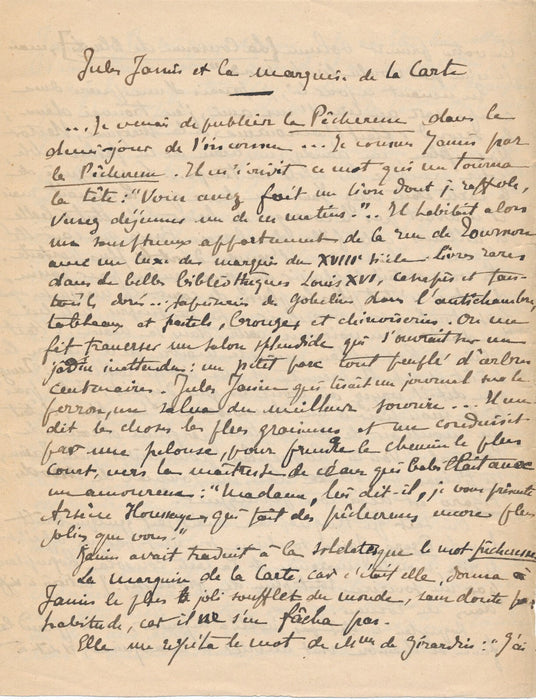 Jules Janin et la marquise de la Carte
... Je venais de publier la Pêcheresse, dans le
demi-jour de l'inconnu ... Je connus Janin par
la Pêcheresse. Il m'écrivit ce mot qui me tourna
la tête : "Vous avez fait un livre dont je raffole,
Venez déjeuner un de ces matins." .. Il habitait alors
un somptueux appartement de la rue de Tournon
avec un luxe de marquis du XVIIIe siècle. Livres rares
dans de belles bibliothèques Louis XVI, canapés et fau-
teuils dorés... tapisseries des Gobelins dans l'antichambre,
tableaux et pastels, bronzes et chinoiseries. On me
fit traverser un salon splendide qui s'ouvrait sur un
jardin inattendu : un petit parc tout peuplé d'arbres
centenaires. Jules Janin qui lisait un journal sur le
perron, me salua du meilleur sourire ... Il me
dit les choses les plus gracieuses et me conduisit
par une pelouse, pour prendre le chemin le plus
court, vers la maîtresse de céans qui babillait avec
un amoureux : "Madame, lui dit-il, je vous présente
Arsène Houssaye, qui fait des pêcheresses encore plus
jolies que vous."
Janin avait traduit à la soldatesque le mot pêcheresse
La marquise de la Carte, car c'était elle, donna à
Janin le plus joli soufflet du monde, sans doute par
habitude, car il ne s'en fâcha pas.
Elle me répéta le mot de Mme de Girardin : "J'ai